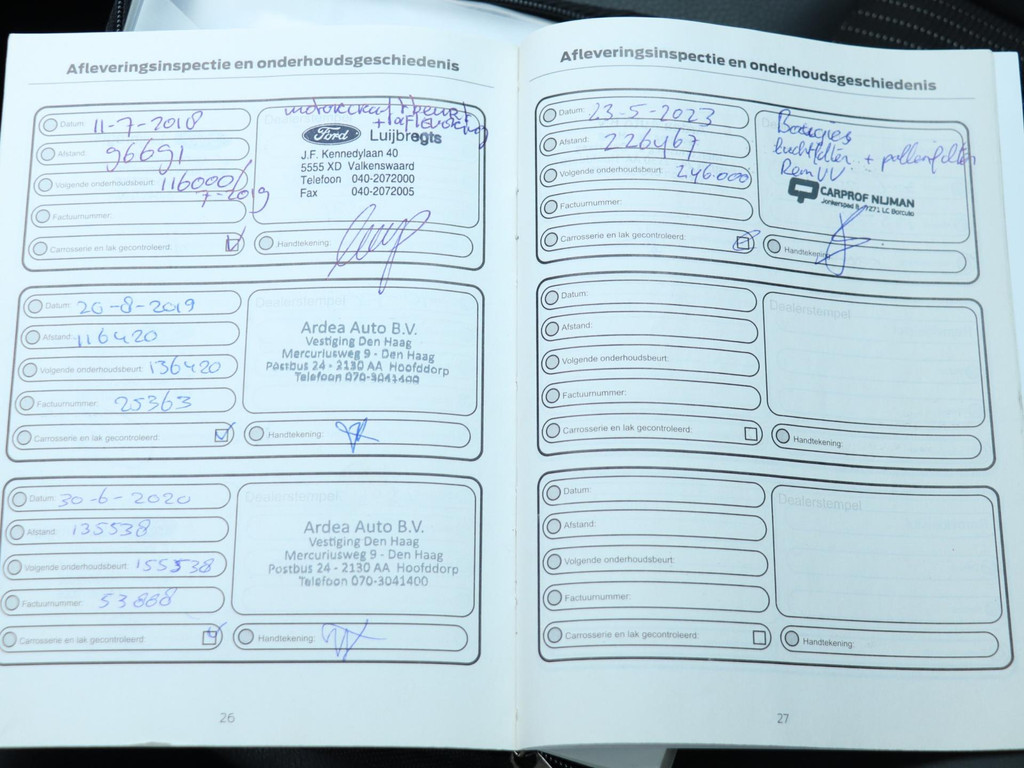 Afleveringsinspectie en onderhoudsgeschiedenis
Datum: 11-7-2018
Afstand: 96691
Volgende onderhoudsbeurt: 116000/
7-2019
Factuurnummer:
Carrosserie en lak gecontroleerd:
+ aflevering
Ford Luijbregts
J.F. Kennedylaan 40
5555 XD Valkenswaard
Telefoon 040-2072000
Fax 040-2072005
Handtekening:
Datum: 20-8-2019
Afstand: 116420
Volgende onderhoudsbeurt: 136420
Factuurnummer: 25363
Carrosserie en lak gecontroleerd:
Dealerstempel
Ardea Auto B.V.
Vestiging Den Haag
Mercuriusweg 9 - Den Haag
Postbus 24 - 2130 AA Hoofddorp
Telefoon 070-3041400
Handtekening:
Datum: 30-6-2020
Afstand: 135538
Volgende onderhoudsbeurt: 155538
Factuurnummer: 53888
Carrosserie en lak gecontroleerd:
Dealerstempel
Ardea Auto B.V.
Vestiging Den Haag
Mercuriusweg 9 - Den Haag
Postbus 24 - 2130 AA Hoofddorp
Telefoon 070-3041400
Handtekening:
26
Afleveringsinspectie en onderhoudsgeschiedenis
Datum: 23-5-2023
Afstand: 226467
Volgende onderhoudsbeurt: 246.000
Factuurnummer:
Carrosserie en lak gecontroleerd:
Bougies
luchtfilter + pollenfilter
Rem VV
CARPROF NIJMAN
Jonkerspad 9 - 7271 LC Borculo
Handtekening:
Datum:
Afstand:
Volgende onderhoudsbeurt:
Factuurnummer:
Carrosserie en lak gecontroleerd:
Dealerstempel
Handtekening:
Datum:
Afstand:
Volgende onderhoudsbeurt:
Factuurnummer:
Carrosserie en lak gecontroleerd:
Dealerstempel
Handtekening:
27